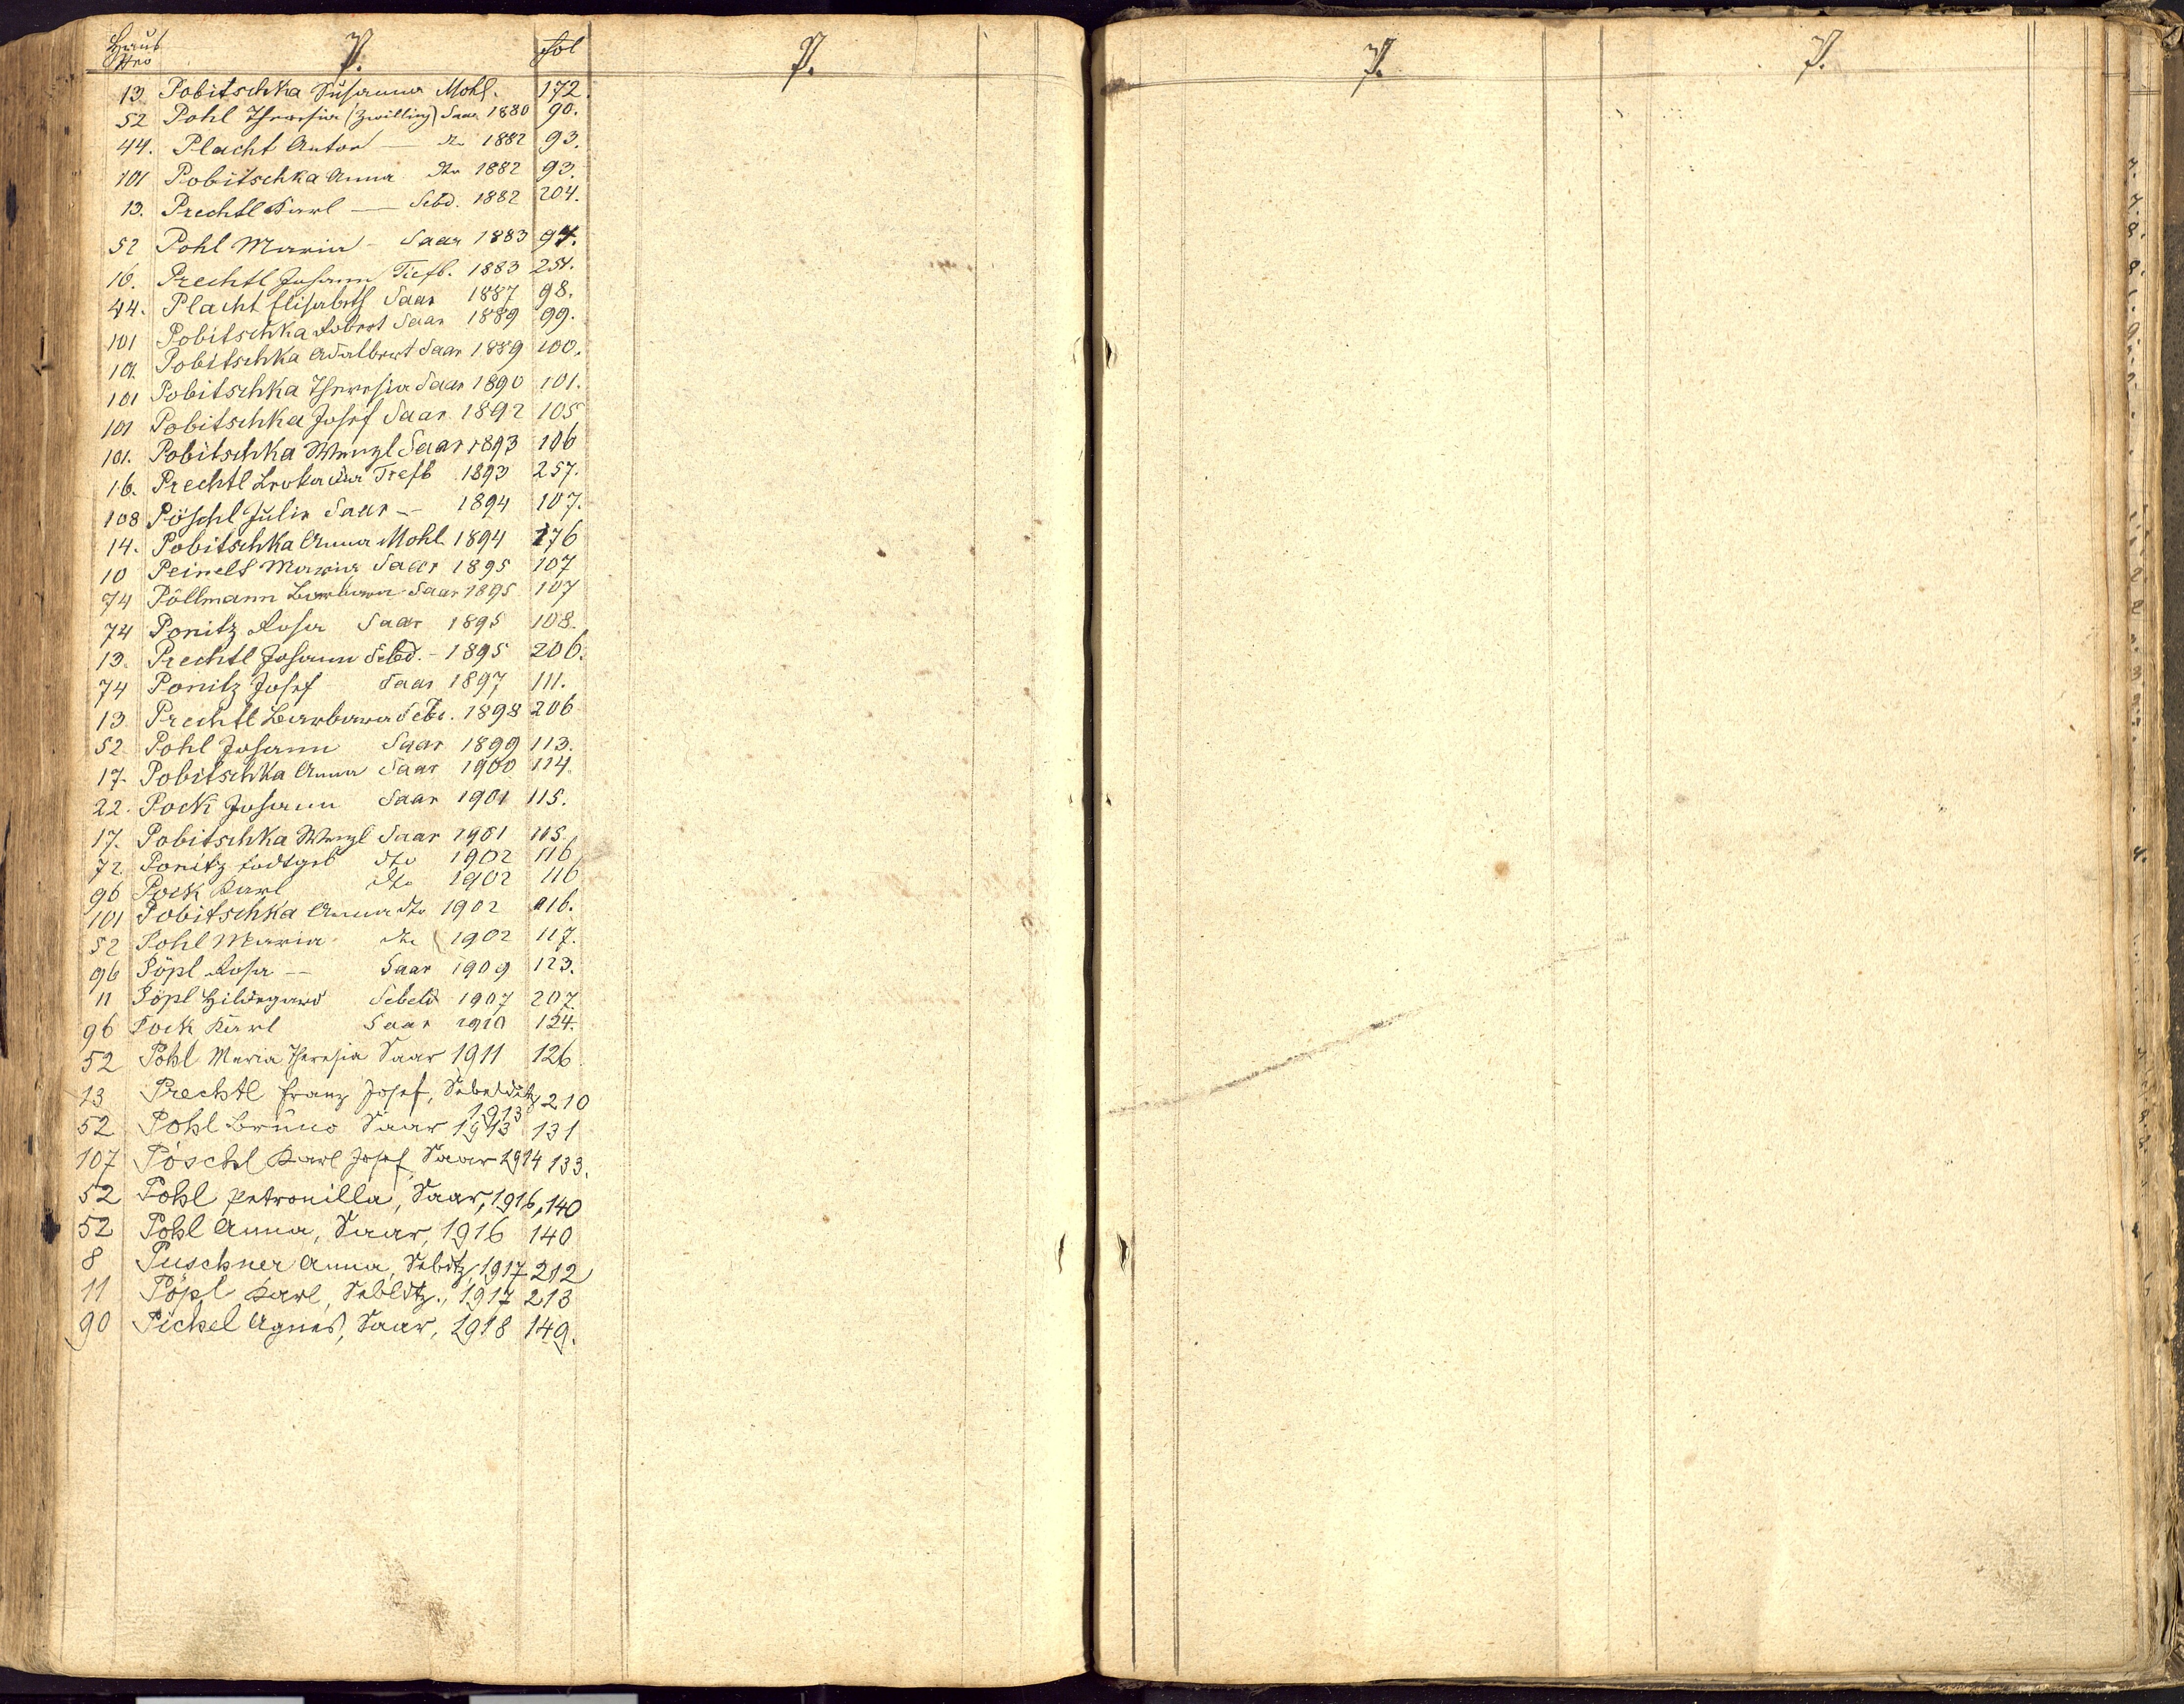 Haus Nro P. Fol P. P. P.
13 Pobitschka Susanna Mohl. 172.
52 Pohl Theresia (Zwilling) Saar 1880 90.
44. Placht Anton — dto 1882 93.
101 Pobitschka Anna dto 1882 93.
13. Prechtl Karl — Sebd. 1882 204.
52 Pohl Maria - Saar 1883 94.
16. Prechtl Johann Tiefb. 1883 254.
44. Placht Elisabeth Saar 1887 98.
101 Pobitschka Robert Saar 1889 99.
101. Pobitschka Adalbert Saar 1889 100.
101 Pobitschka Theresia Saar 1890 101.
101 Pobitschka Josef Saar 1892 105
101. Pobitschka Wenzl Saar 1893 106
16. Prechtl Leokadia Tiefb 1893 257.
108 Pöschl Julie Saar — 1894 107.
14. Pobitschka Anna Mohl 1894 176
10 Peinelt Maria Saar 1895 107
74 Pöllmann Barbara Saar 1895 107
74 Ponitz Rosa Saar 1895 108.
13. Prechtl Johann Sebd. - 1895 206.
74 Ponitz Josef Saar 1897 111.
13 Prechtl Barbara Seb. 1898 206
52 Pohl Johann Saar 1899 113.
17. Pobitschka Anna Saar 1900 114.
22. Pock Johann Saar 1901 115.
17. Pobitschka Wenzl Saar 1901 115.
72. Ponitz todtgeb dto 1902 116
96 Pock Karl dto 1902 116
101 Pobitschka Anna dto 1902 116.
52 Pohl Maria dto 1902 117.
96 Pöpl Rosa — Saar 1909 123.
11 Pöpl Hildegard Sebeld 1907 207.
96 Pock Karl Saar 1910 124.
52 Pohl Maria Theresia Saar 1911 126.
13 Prechtl Franz Josef, Sebelditz 210
1913
52 Pohl Bruno Saar 1913 131
107 Pöschl Karl Josef Saar 1914 133.
52 Pohl Petronilla, Saar, 1916, 140
52 Pohl Anna, Saar, 1916 140
8 Puschner Anna, Sebdtz, 1917 212
11 Pöpl Karl, Sebldtz., 1917 213
90 Pickel Agnes, Saar, 1918 149.